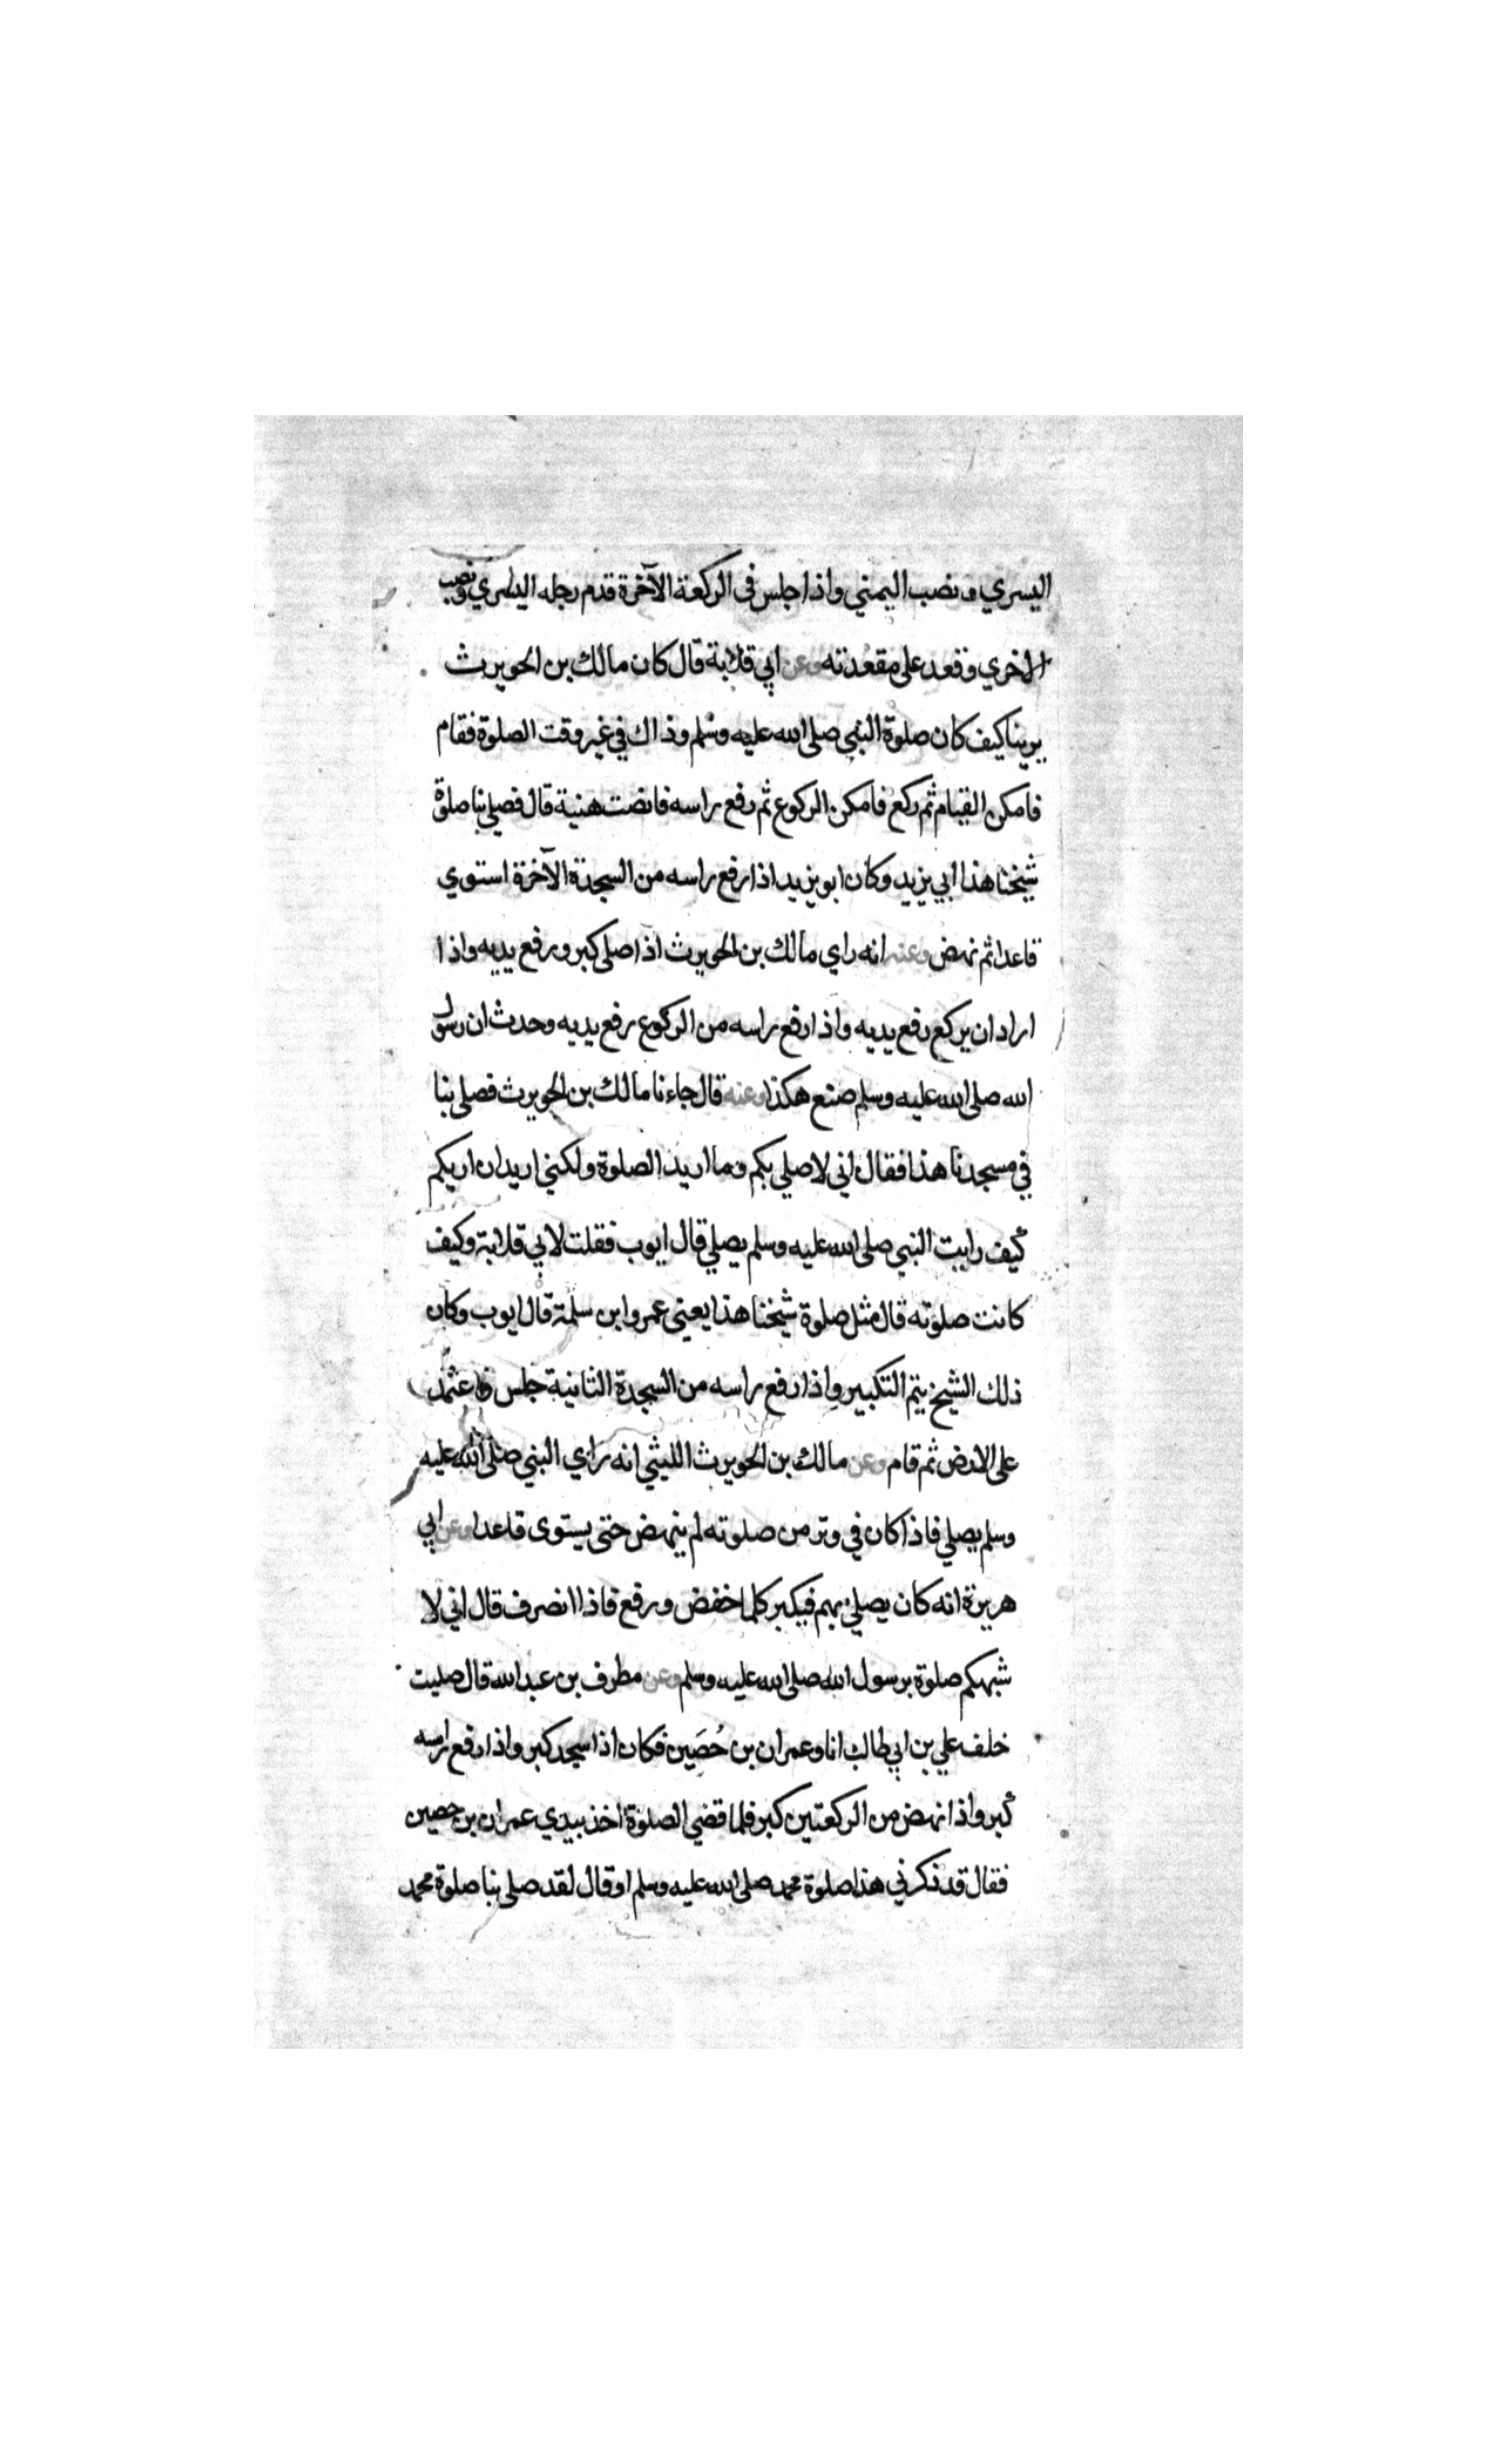 اليسري ونصب اليمني واذا جلس فى الركعة الآخرة قدم رجله اليسري ونصب
الاخري وقعد على مقعدته وعن ابي قلابة قال كان مالك بن الحويرث
يرينا كيف كان صلوة النبي صلى الله عليه وسلم وذاك في غير وقت الصلوة فقام
فامكن القيام ثم ركع فامكن الركوع ثم رفع راسه فانصت هنية قال فصلي بنا صلوة
شيخنا هذا ابي يزيد وكان ابو يزيد اذا رفع راسه من السجدة الآخرة استوي
قاعدا ثم نهض وعنه انه راي مالك بن الحويرث اذا صلى كبر ورفع يديه واذا
اراد ان يركع رفع يديه واذا رفع راسه من الركوع رفع يديه وحدث ان رسول
الله صلى الله عليه وسلم صنع هكذا وعنه قال جاءنا مالك بن الحويرث فصلى بنا
في مسجدنا هذا فقال اني لاصلي بكم وما اريد الصلوة ولكني اريد ان اريكم
كيف رايت النبي صلى الله عليه وسلم يصلي قال ايوب فقلت لابي قلابة وكيف
كانت صلوته قال مثل صلوة شيخنا هذا يعني عمرو ابن سلمة قال ايوب وكان
ذلك الشيخ يتم التكبير واذا رفع راسه من السجدة الثانية جلس فاعتمد
على الارض ثم قام وعن مالك بن الحويرث الليثي انه راي النبي صلى الله عليه
وسلم يصلي فاذا كان في وتر من صلوته لم ينهض حتى يستوى قاعدا وعن ابي
هريرة انه كان يصلي بهم فيكبر كلما خفض ورفع فاذا انصرف قال اني لا
شبهكم صلوة برسول الله صلى الله عليه وسلم وعن مطرف بن عبد الله قال صليت
خلف علي بن ابي طالب انا وعمران بن حُصَين فكان اذا سجد كبر واذا رفع راسه
كبر واذا نهض من الركعتين كبر فلما قضي الصلوة اخذ بيدي عمران بن حصين
فقال قد ذكرني هذا صلوة محمد صلى الله عليه وسلم او قال لقد صلى بنا صلوة محمد